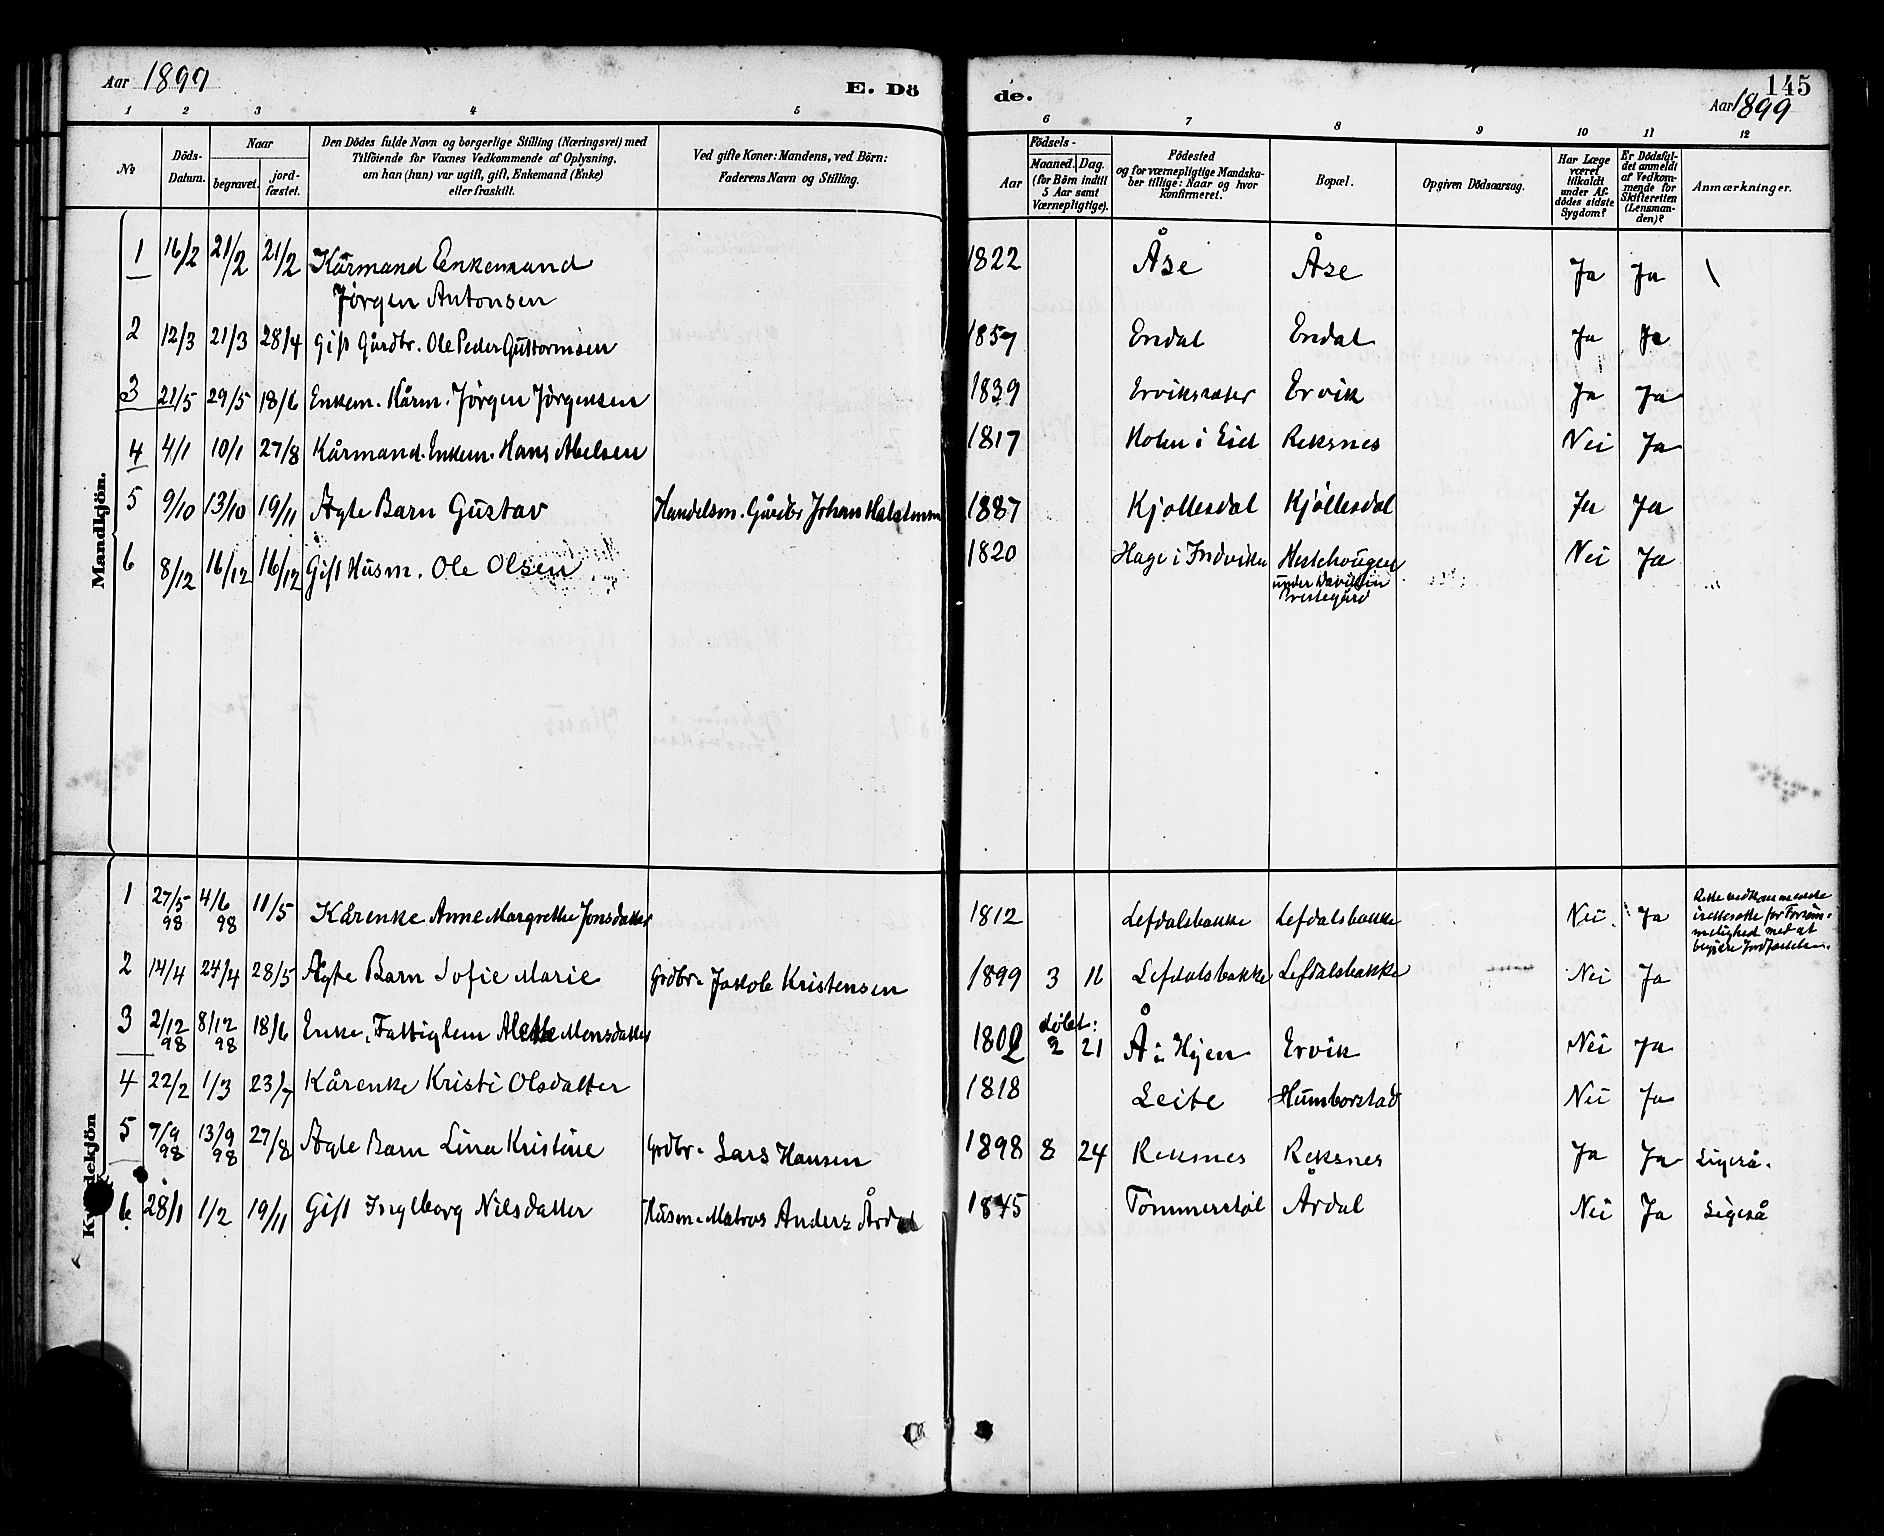 Aar 1899
E. Döde.
145
Aar 1899
1 2 3 4 5 6 7 8 9 10 11 12
No
Döds-Datum.
Naar
begravet.
jord-fæstet.
Den Dödes fulde Navn og borgerlige Stilling (Næringsvei) med
Tilföiende for Voxnes Vedkommende af Oplysning,
om han (hun) var ugift, gift, Enkemand (Enke)
eller fraskilt.
Ved gifte Koner: Mandens, ved Börn:
Faderens Navn og Stilling.
Födsels-
Aar
Maaned. Dag.
(for Börn indtil
5 Aar samt
Værnepligtige).
Födested
og for værnepligtige Mandska-
ber tillige: Naar og hvor
konfirmeret.
Bopæl.
Opgiven Dödsaarsag.
Har Læge
været
tilkaldt
under Af-
dödes sidste
Sygdom?
Er Dödsfal-
det anmeldt
af Vedkom-
mende for
Skifteretten
(Lensman-
den)?
Anmærkninger.
Mandkjön.
1 16/2 21/2 21/2 Kårmand Enkemand 1822 Åse Åse Ja Ja \
Jørgen Antonsen
2 12/3 21/3 28/4 Gift Gårdbr. Ole Peder Guttormsen 1857 Endal Endal Ja Ja
3 21/5 29/5 18/6 Enkem. Kårm. Jørgen Jørgensen 1839 Erviksæter Ervik Ja Ja
4 4/1 10/1 27/8 Kårmand. Enkem. Hans Abelsen 1817 Holen i Eid Reksnes Nei Ja
5 9/10 13/10 19/11 Ægte Barn Gustav Handelsm. Gårdbr Johan 1887 Kjøllesdal Kjøllesdal Ja Ja
6 8/12 16/12 16/12 Gift Husm. Ole Olsen 1820 Hage i Indviken Hestehougen Nei Ja
under Daviken
Prestegård
Kvindekjön
1 27/5 98 4/6 98 11/5 Kårenke Anne Margrethe Jonsdatter 1812 Lefdalsbakke Lefdalsbakke Nei Ja Rette vedkommende
irettesatte for Forsöm-
melighed med at
begjære Jordfæstelsen.
2 14/4 24/4 28/5 Ægte Barn Sofie Marie Grdbr. Jakob Kristensen 1899 3 11 Lefdalsbakke Lefdalsbakke Nei Ja
3 2/12 98 8/12 98 18/6 Enke, Fattiglem Alette Monsdatter 1802 døbt: 2 21 Å i Hyen Ervik Nei Ja
4 22/2 1/3 23/7 Kårenke Kristi Olsdatter 1818 Leite Humborstad Nei Ja
5 7/9 98 13/9 98 27/8 Ægte Barn Lina Kristine Grdbr. Lars Hansen 1898 8 24 Reksnes Reksnes Ja Ja Ligeså.
6 28/1 1/2 19/11 Gift Ingeborg Nilsdatter Husm. Matros Anders Årdal 1845 Tømmerstøl Årdal Nei Ja Ligeså